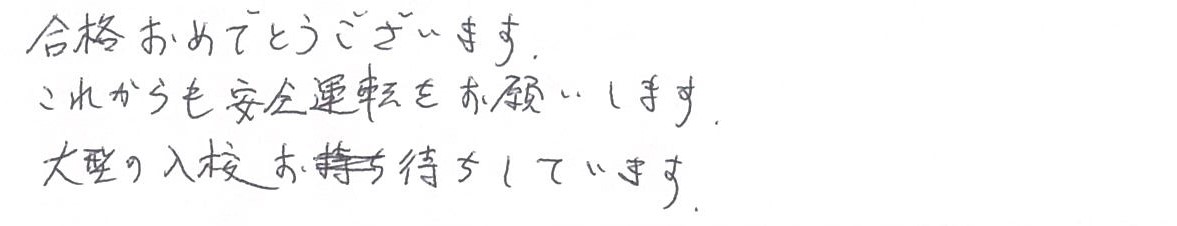 合格おめでとうございます.
これからも安全運転をお願いします.
大型の入校お待ちしています.